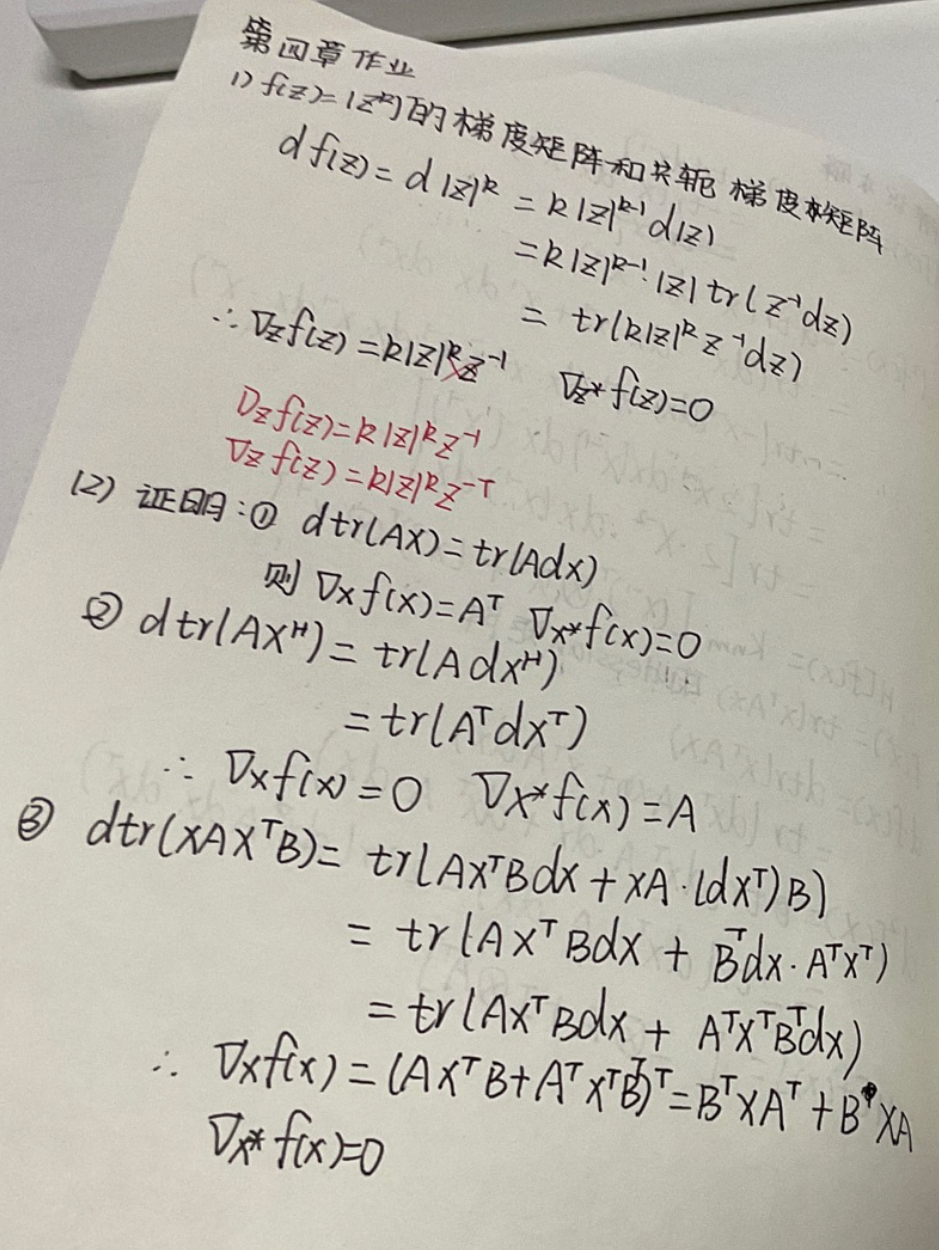 第四章作业
1) f(z)=|z^k|的梯度矩阵和共轭梯度矩阵
df(z)=d|z|^k=k|z|^{k-1}d|z|
=k|z|^{k-1}·|z|tr(z^{-1}dz)
=tr(k|z|^k z^{-1}dz)
∴ ∇_z f(z)=k|z|^k z^{-1} ∇_{z*}f(z)=0
D_z f(z)=k|z|^k z^{-1}
∇_z f(z)=k|z|^k z^{-T}
(2) 证明:① dtr(AX)=tr(Adx)
则 ∇_x f(x)=A^T ∇_{x*}f(x)=0
② dtr(AX^H)=tr(Adx^H)
=tr(A^T dx^T)
∴ ∇_x f(x)=0 ∇_{x*}f(x)=A
③ dtr(XAX^TB)=tr(AX^TBdx+XA·(dx^T)B)
=tr(AX^TBdx+B^Tdx·A^TX^T)
=tr(AX^TBdx+A^TX^TB^Tdx)
∴ ∇_x f(x)=(AX^TB+A^TX^TB^T)^T=B^TXA^T+BXA
∇_{x*}f(x)=0